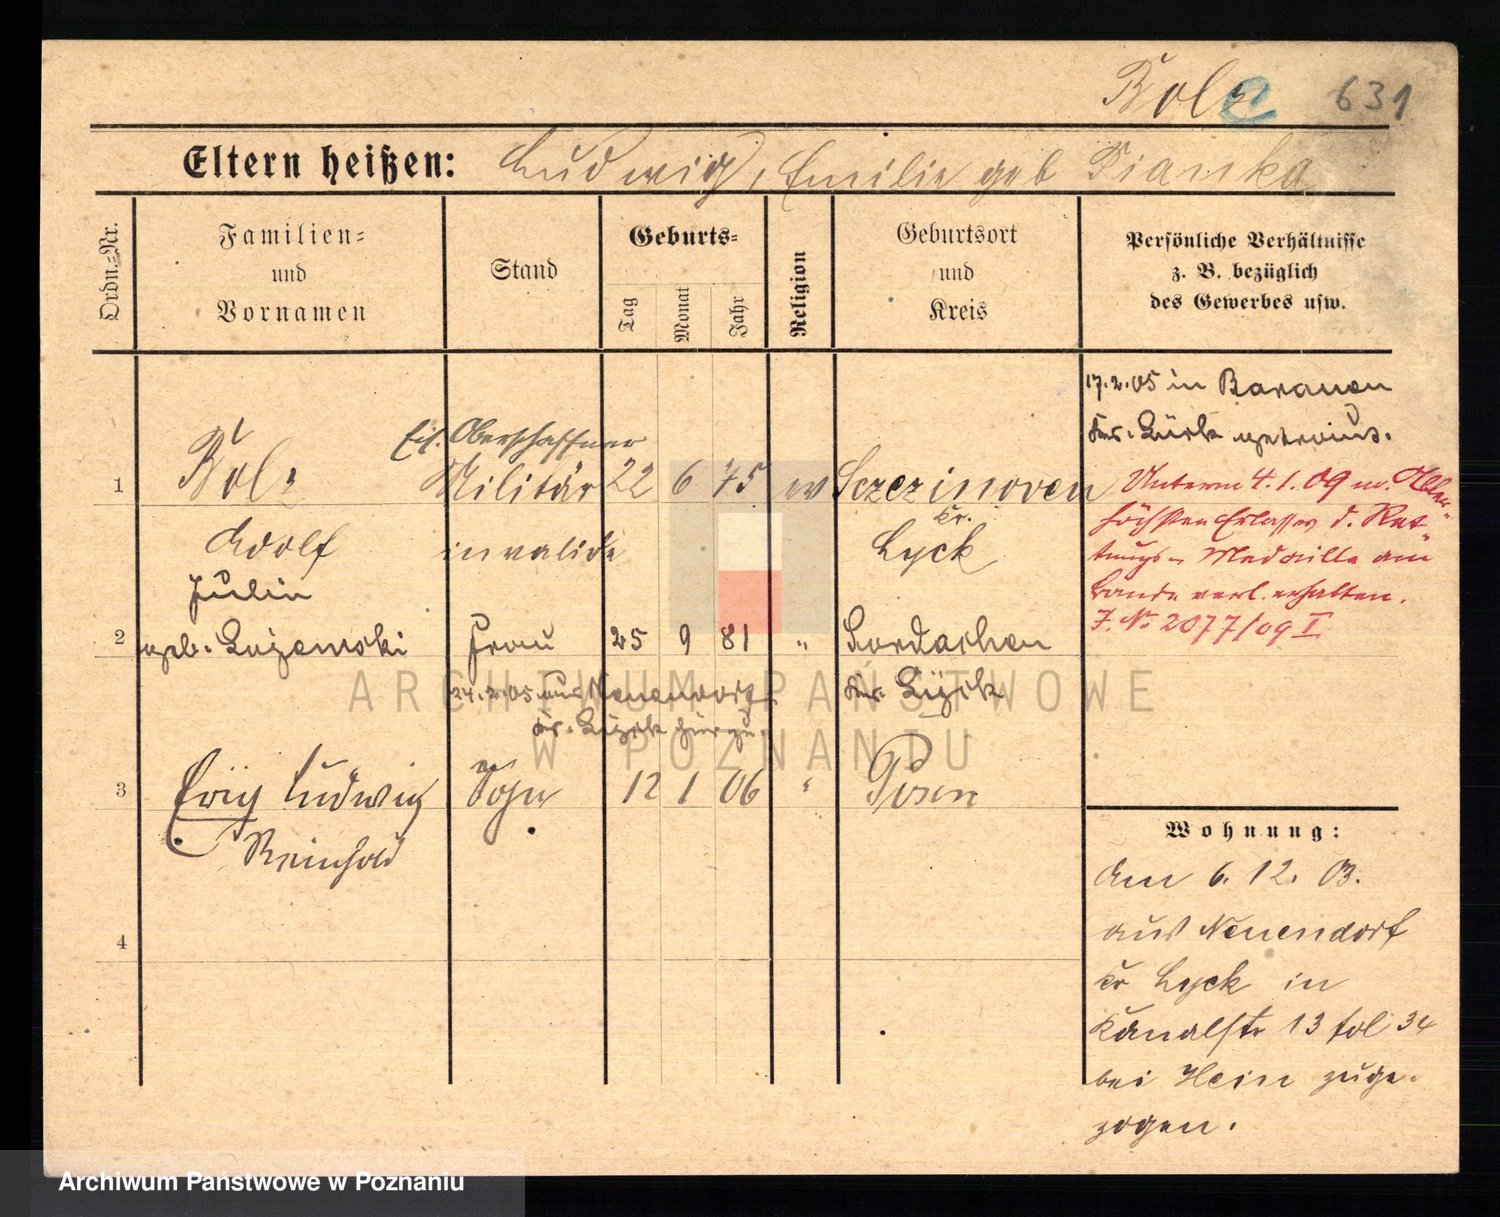 Bolz 631
Eltern heißen: Ludwig, Emilie geb Pianka
Ordn.=Nr.
Familien=
und
Vornamen
Stand
Geburts=
Tag
Monat
Jahr
Religion
Geburtsort
und
Kreis
Persönliche Verhältnisse
z. B. bezüglich
des Gewerbes usw.
1
Bolz
Adolf
Eis. Oberschaffner
Militär
invalide
22 6 75 ev
Sczezinoven
Kr.
Lyck
2
Julie
geb.
Frau
25 9 81 "
Kr. Lyck
24.2.05 aus Neuendorf
Kr. Lyck hierzu.
3
Erich Ludwig
Reinhold
Sohn
12 1 06 "
Posen
4
17.2.05 in Baranen
Kr. Lyck getraut.
Unterm 4.1.09 m. Aller-
höchsten Erlasses d. Ret-
tungs- Medaille am
Bande verl. erhalten.
J. No 2077/09 I
Wohnung:
Am 6. 12. 03.
aus Neuendorf
Kr Lyck in
Kanalstr 13 fol 34
bei Hein zuge-
zogen.
ARCHIWUM PAŃSTWOWE
W POZNANIU
Archiwum Państwowe w Poznaniu